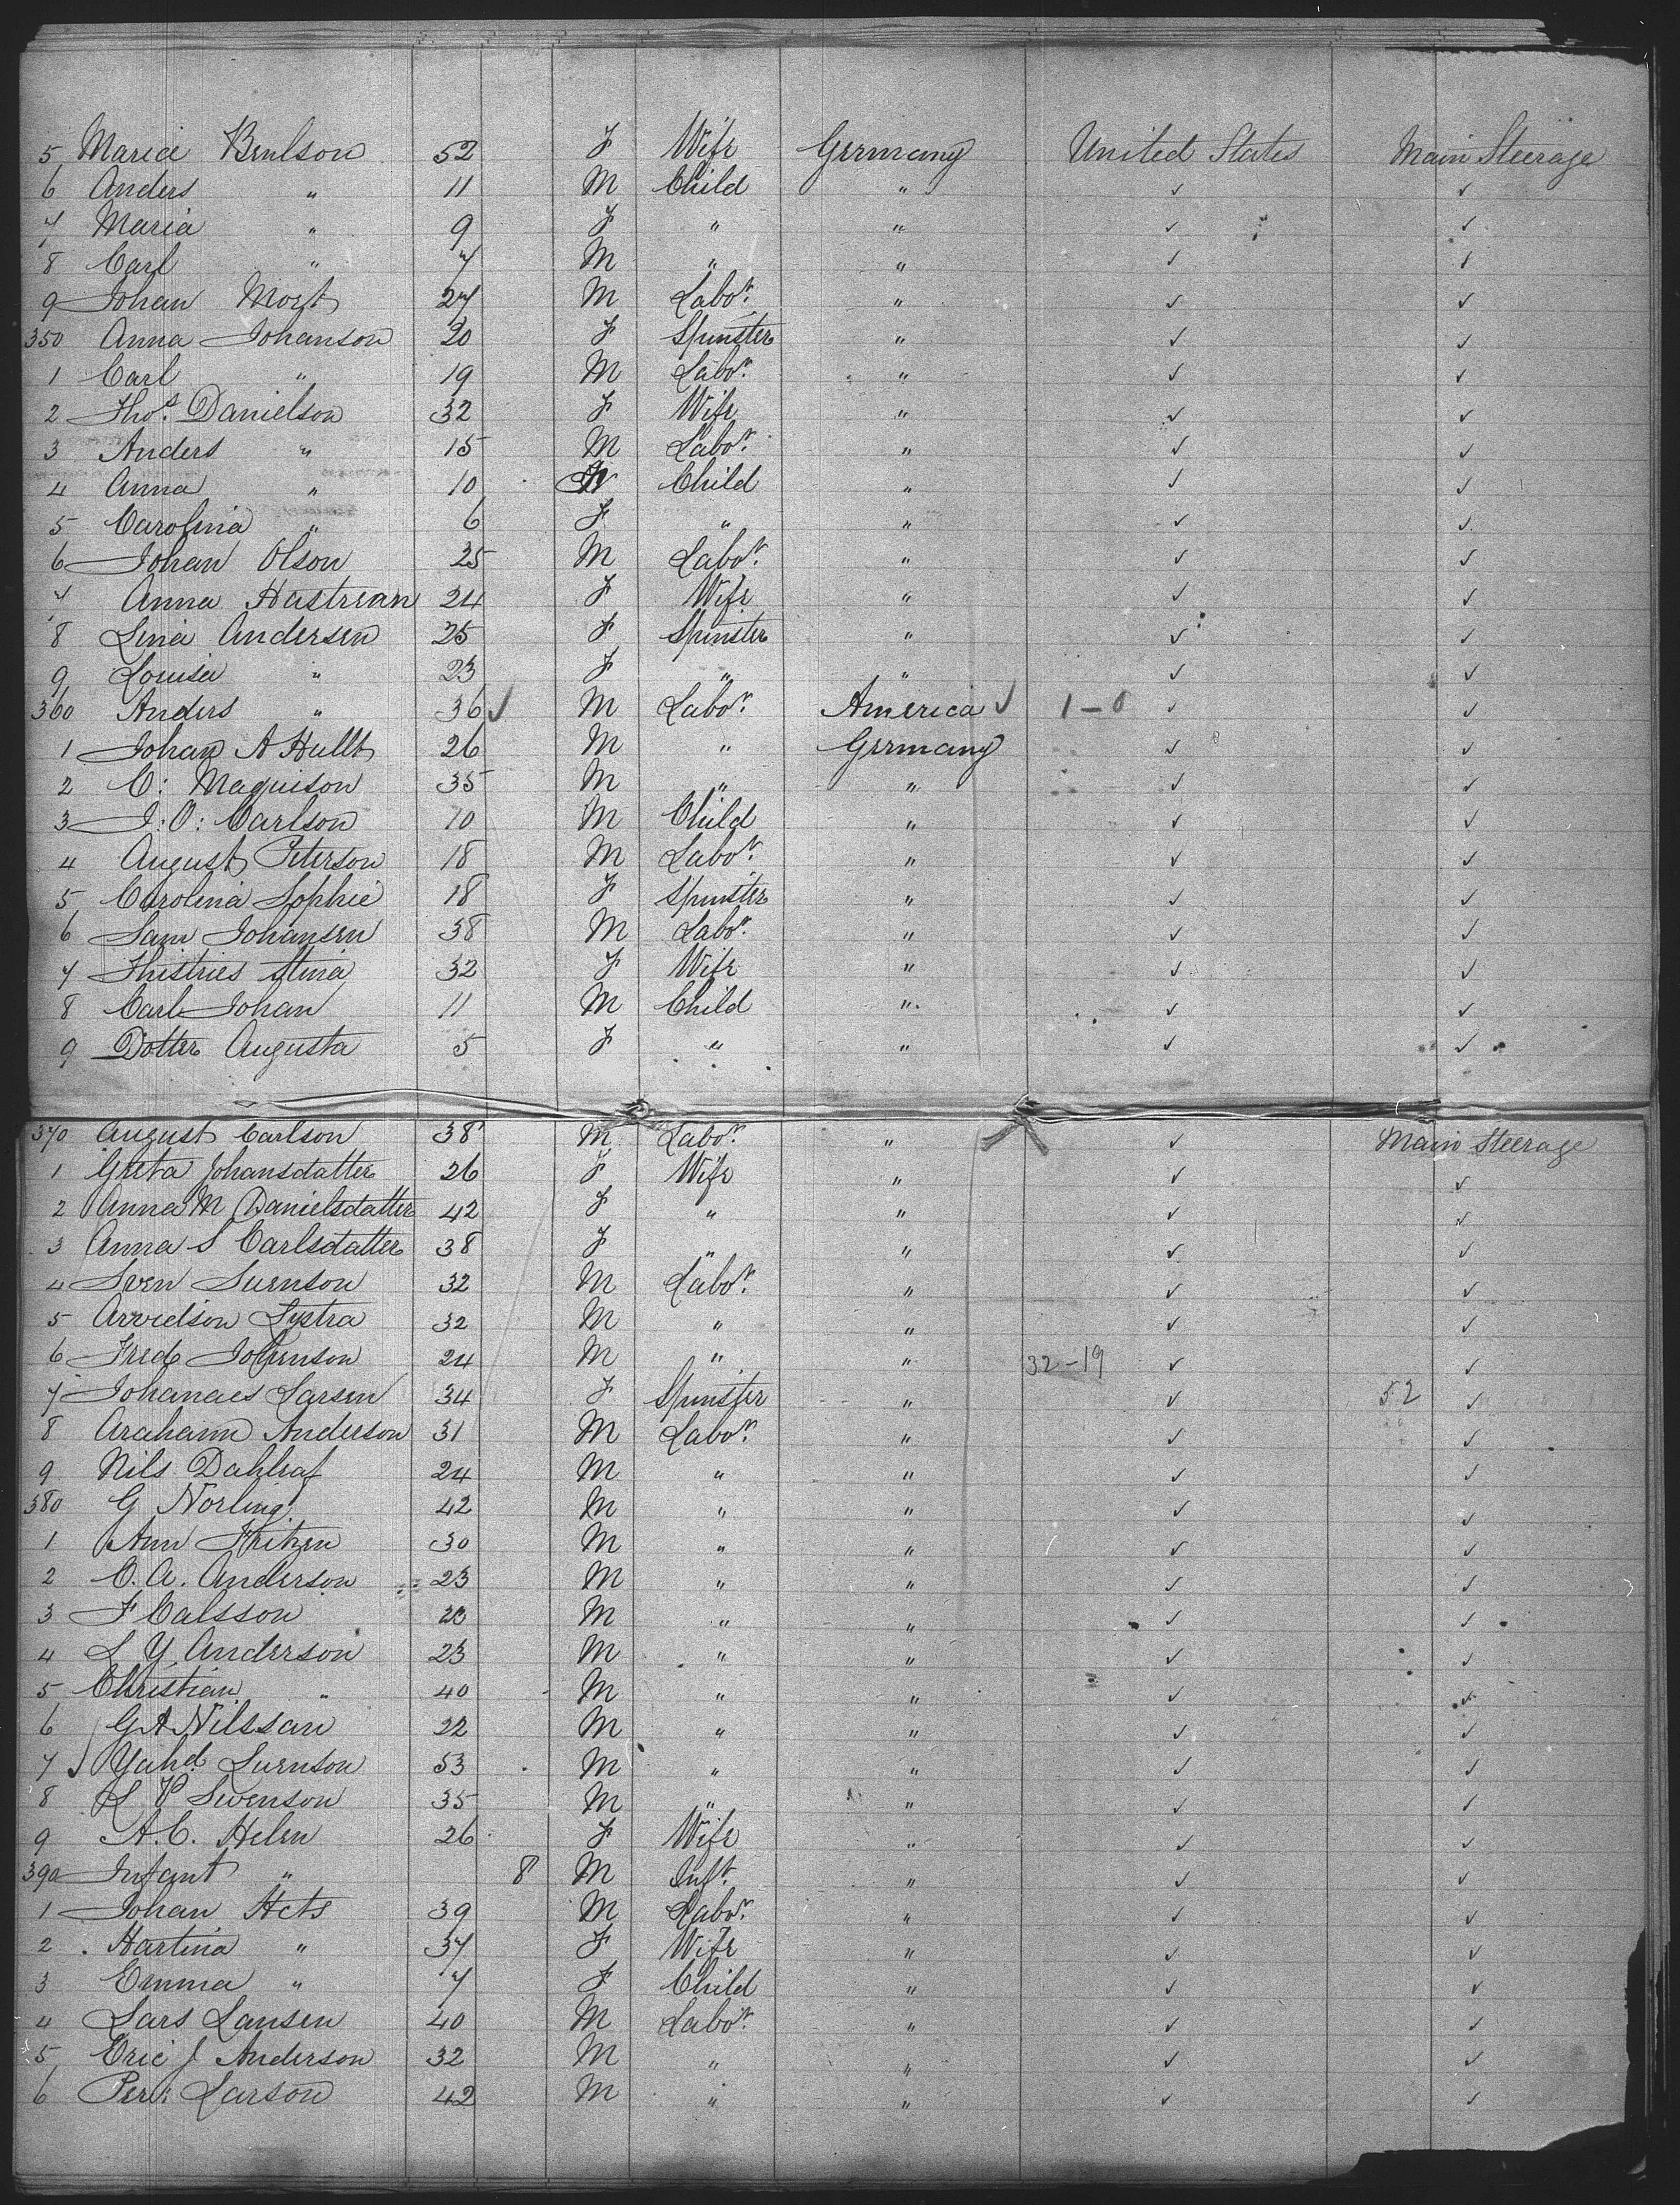 5 Maria Benlson 52 F Wife Germany United States Main Steerage
6 Anders " 11 M Child " ✓ ✓
7 Maria " 9 F " " ✓ ✓
8 Carl " 7 M " " ✓ ✓
9 Johan Morst 27 M Labor. " ✓ ✓
350 Anna Johanson 20 F Spinster " ✓ ✓
1 Carl " 19 M Labor. " ✓ ✓
2 Thos. Danielson 32 F Wife " ✓ ✓
3 Anders " 15 M Labor. " ✓ ✓
4 Anna " 10 Child " ✓ ✓
5 Carolina " 6 F " " ✓ ✓
6 Johan Olson 25 M Labor. " ✓ ✓
7 Anna Hastrean 24 F Wife " ✓ ✓
8 Lina Andersen 25 F Spinster " ✓ ✓
9 Louisa " 23 F " " ✓ ✓
360 Anders " 36 ✓ M Labor. America ✓ 1-0 ✓ ✓
1 Johan A Hullt 26 M " Germany ✓ ✓
2 C: Maguison 35 M " " ✓ ✓
3 J: O: Carlson 10 M Child " ✓ ✓
4 August Peterson 18 M Labor. " ✓ ✓
5 Carolina Sophie 18 F Spinster " ✓ ✓
6 Sam Johansen 38 M Labor. " ✓ ✓
7 Thistries Stina 32 F Wife " ✓ ✓
8 Carl Johan 11 M Child " ✓ ✓
9 Dotter Augusta 5 F " " ✓ ✓
370 August Carlson 38 M Labor. " ✓ Main Steerage
1 Greta Johansdatter 26 F Wife " ✓ ✓
2 Anna M Danielsdatter 42 F " " ✓ ✓
3 Anna S Carlsdatter 38 F " " ✓ ✓
4 Sven Surnson 32 M Labor. " ✓ ✓
5 Arvidson Lystra 32 M " " ✓ ✓
6 Fred Johenson 24 M " " 32-19 ✓ ✓
7 Johanaes Larsen 34 F Spinster " ✓ 52 ✓
8 Arahann Anderson 31 M Labor. " ✓ ✓
9 Nils Dahlraf 24 M " " ✓ ✓
380 G Norling 42 M " " ✓ ✓
1 Ann 30 M " " ✓ ✓
2 C. A. Anderson 23 M " " ✓ ✓
3 F Calsson M " " ✓ ✓
4 L Y Anderson 23 M " " ✓ ✓
5 Christian " 40 M " " ✓ ✓
6 G A Nilssan 22 M " " ✓ ✓
7 Yahd. Surnson 53 M " " ✓ ✓
8 L P Swenson 35 M " " ✓ ✓
9 A. C. Helen 26 F Wife " ✓ ✓
390 Infant " 8 M Inft. " ✓ ✓
1 Johan Hets 39 M Labor. " ✓ ✓
2 Hartina " 37 F Wife " ✓ ✓
3 Emma " 7 F Child " ✓ ✓
4 Lars Lansen 40 M Labor. " ✓ ✓
5 Eric J Anderson 32 M " " ✓ ✓
6 Per: Larson 42 M " " ✓ ✓